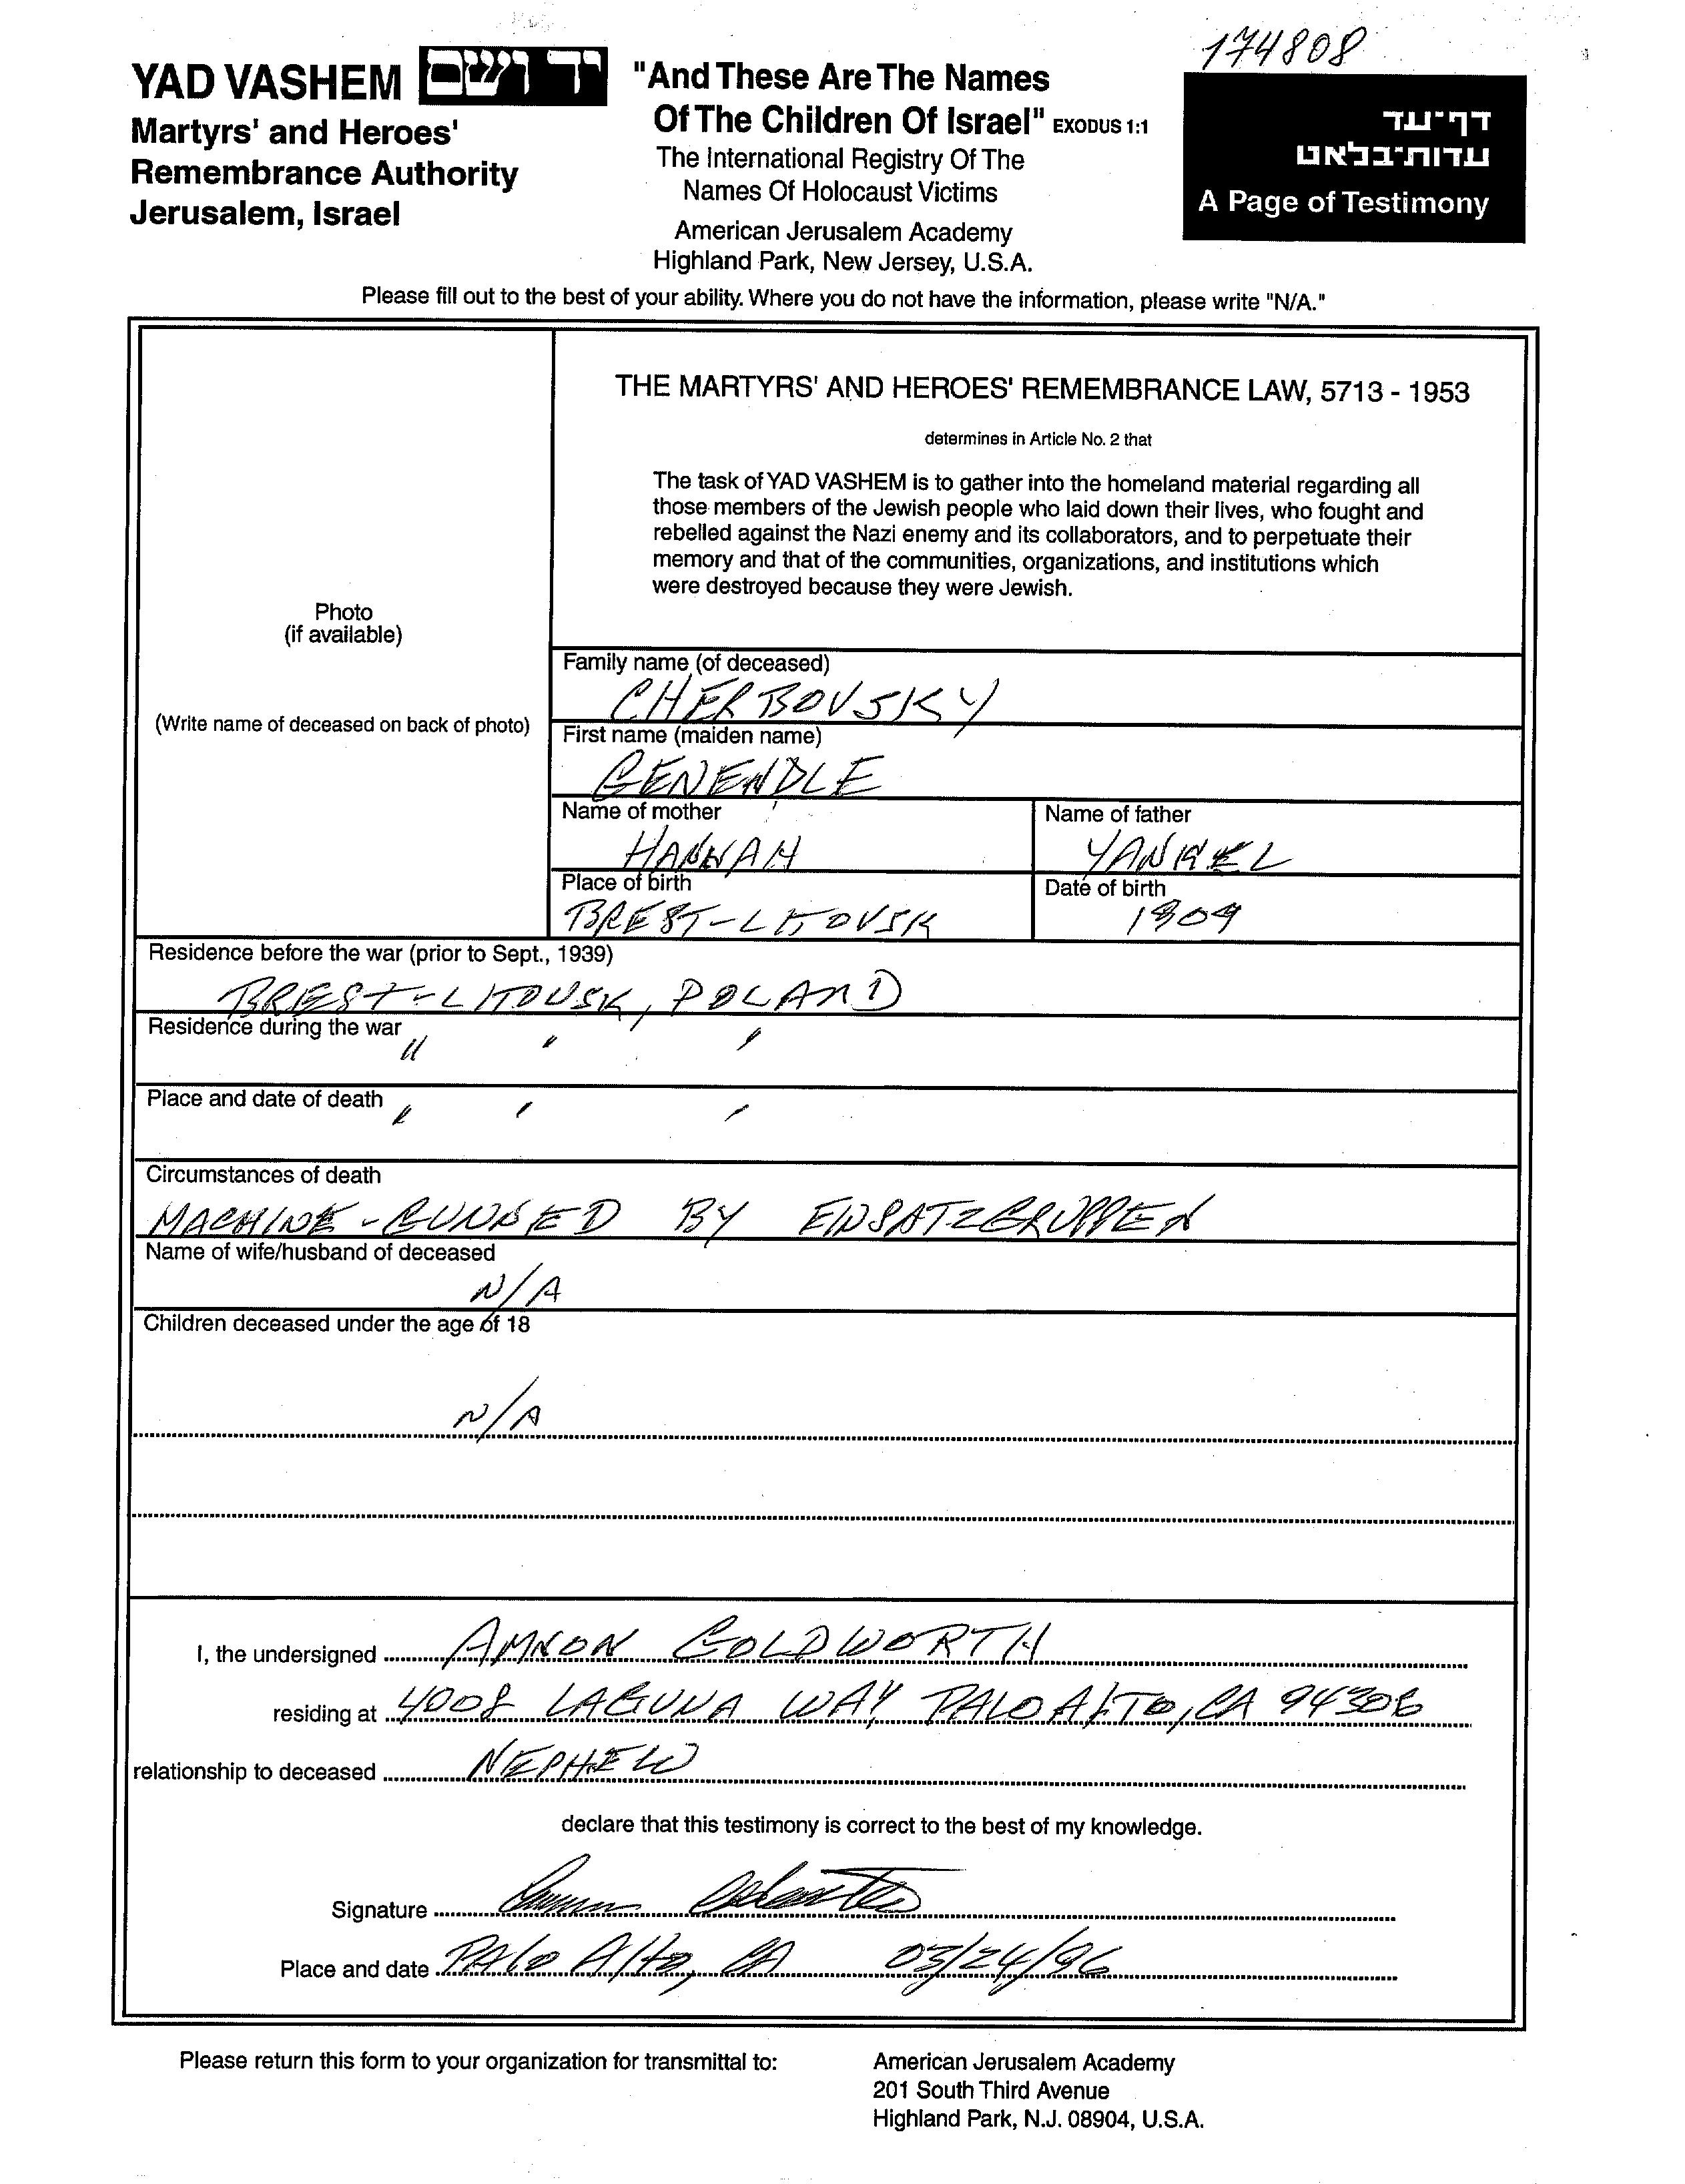 174808
YAD VASHEM יד ושם
Martyrs' and Heroes'
Remembrance Authority
Jerusalem, Israel
"And These Are The Names
Of The Children Of Israel" EXODUS 1:1
The International Registry Of The
Names Of Holocaust Victims
American Jerusalem Academy
Highland Park, New Jersey, U.S.A.
דף-עד
עדות-בלאט
A Page of Testimony
Please fill out to the best of your ability. Where you do not have the information, please write "N/A."
Photo
(if available)
(Write name of deceased on back of photo)
THE MARTYRS' AND HEROES' REMEMBRANCE LAW, 5713 - 1953
determines in Article No. 2 that
The task of YAD VASHEM is to gather into the homeland material regarding all
those members of the Jewish people who laid down their lives, who fought and
rebelled against the Nazi enemy and its collaborators, and to perpetuate their
memory and that of the communities, organizations, and institutions which
were destroyed because they were Jewish.
Family name (of deceased)
CHERBOVSKY
First name (maiden name)
GENENDLE
Name of mother
HANNAH
Name of father
YANKEL
Place of birth
BREST-LITOVSK
Date of birth
1909
Residence before the war (prior to Sept., 1939)
BREST-LITOVSK, POLAND
Residence during the war
" " "
Place and date of death
" " "
Circumstances of death
MACHINE-GUNNED BY EINSATZGRUPPEN
Name of wife/husband of deceased
N/A
Children deceased under the age of 18
N/A
I, the undersigned AMNON GOLDWORTH
residing at 4008 LAGUNA WAY, PALO ALTO, CA 94306
relationship to deceased NEPHEW
declare that this testimony is correct to the best of my knowledge.
Signature
Place and date Palo Alto, CA 03/24/96
Please return this form to your organization for transmittal to:
American Jerusalem Academy
201 South Third Avenue
Highland Park, N.J. 08904, U.S.A.